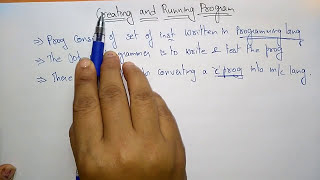 Creating and Running Program
→ Prog cons of set of inst written in programming lang
→ The Jo grammer is to write & test the prog
→ There in converting a 'c' prog into m/c lang.